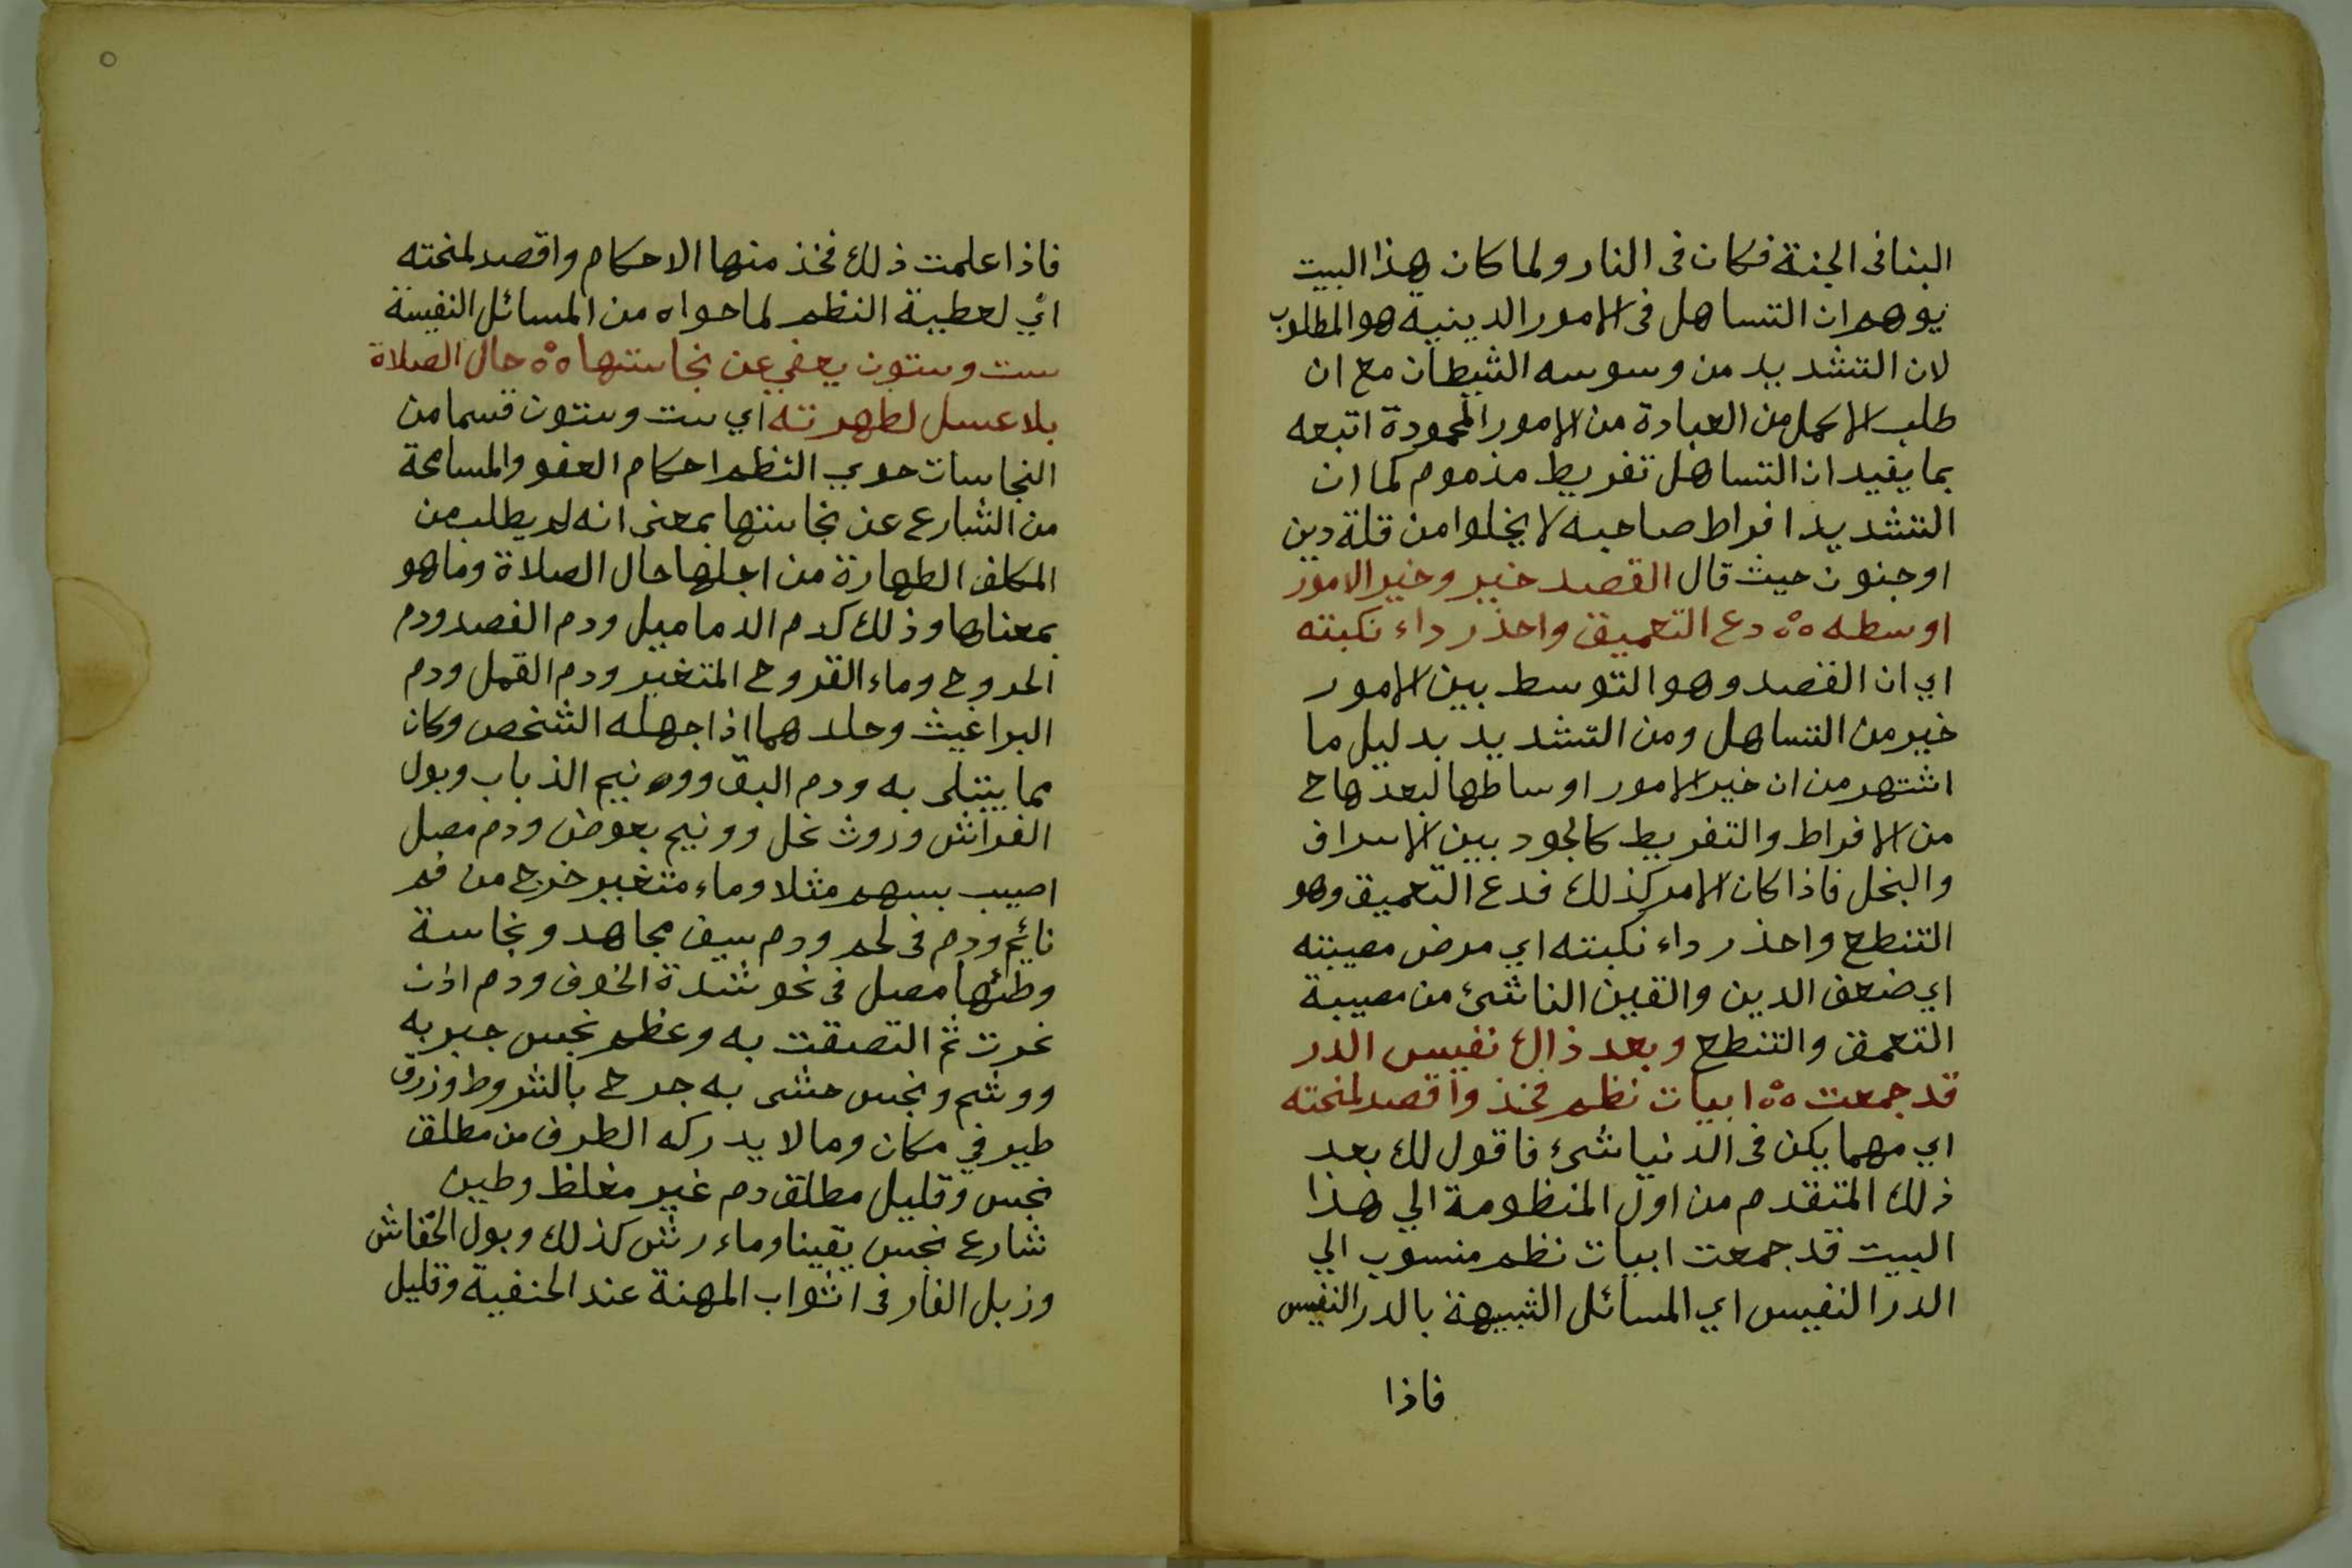 البنافى الجنة فكان فى النار ولما كان هذا البيت
يوهم ان التساهل فى الامور الدينية هو المطلوب
لان التشديد من وسوسه الشيطان مع ان
طلب الاكمل من العبادة من الامور المحمودة اتبعه
بما يفيد ان التساهل تفريط مذموم كما ان
التشديد افراط صاحبه لا يخلوا من قلة دين
او جنون حيث قال القصد خير وخير الامور
اوسطه ٥٥ دع التعميق واحذر داء نكبته
اي ان القصد وهو التوسط بين الامور
خير من التساهل ومن التشديد بدليل ما
اشتهر من ان خير الامور اوساطها لبعدها ح
من الافراط والتفريط كالجود بين الاسراف
والبخل فاذا كان الامر كذلك فدع التعميق وهو
التنطع واحذر داء نكبته اي مرض مصيبته
اي ضعف الدين والقين الناشئ من مصيبة
التعمق والتنطع وبعد ذاك نفيس الدر
قد جمعت ٥٥ ابيات نظم فخذ واقصد لمنحته
اي مهما يكن فى الدنيا شئ فاقول لك بعد
ذلك المتقدم من اول المنظومة الي هذا
البيت قد جمعت ابيات نظم منسوب الي
الدر النفيس اي المسائل الشبيهة بالدر النفيس
فاذا
٥
فاذا علمت ذلك فخذ منها الاحكام واقصد لمنحته
اي لعطية النظم لما حواه من المسائل النفيسة
ست وستون يعفي عن نجاستها ٥٥ حال الصلاة
بلا غسل لطهرته اي ست وستون قسما من
النجاسات حوي النظم احكام العفو والمسامحة
من الشارع عن نجاستها بمعنى انه لم يطلب من
المكلف الطهارة من اجلها حال الصلاة وما هو
بمعناها وذلك كدم الدماميل ودم الفصد ودم
الجروح وماء القروح المتغير ودم القمل ودم
البراغيث وجلدهما اذا جهله الشخص وكان
مما يبتلى به ودم البق وونيم الذباب وبول
الفراش وروث نحل وونيم بعوض ودم مصل
اصيب بسهم مثلا وماء متغير خرج من فم
نائم ودم فى لحم ودم سيف مجاهد ونجاسة
وطئها مصل فى نحو شدة الخوف ودم اذن
خرت ثم التصقت به وعظم نجس جبر به
ووشم ونجس حشى به جرح بالشروط وزرق
طير في مكان وما لا يدركه الطرف من مطلق
نجس وقليل مطلق دم غير مغلظ وطين
شارع نجس يقينا وماء رش كذلك وبول الخفاش
وزبل الفار فى اثواب المهنة عند الحنفية وقليل